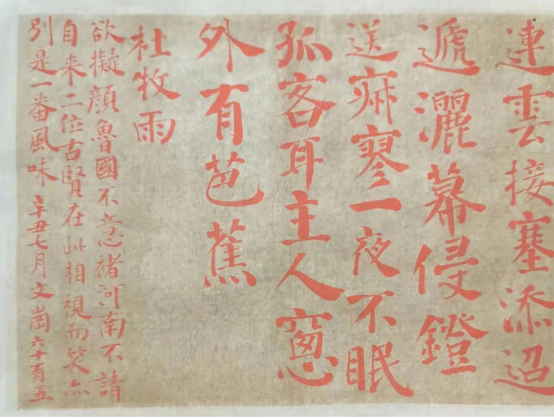 連雲接塞添迢
遞灑幕侵鐙
送寂寥一夜不眠
孤客耳主人窓
外有芭蕉
杜牧雨
欲擬顏魯國不意褚河南不請
自来二位古賢在此相視而笑亦
別是一番風味 辛丑七月文崗六十有五